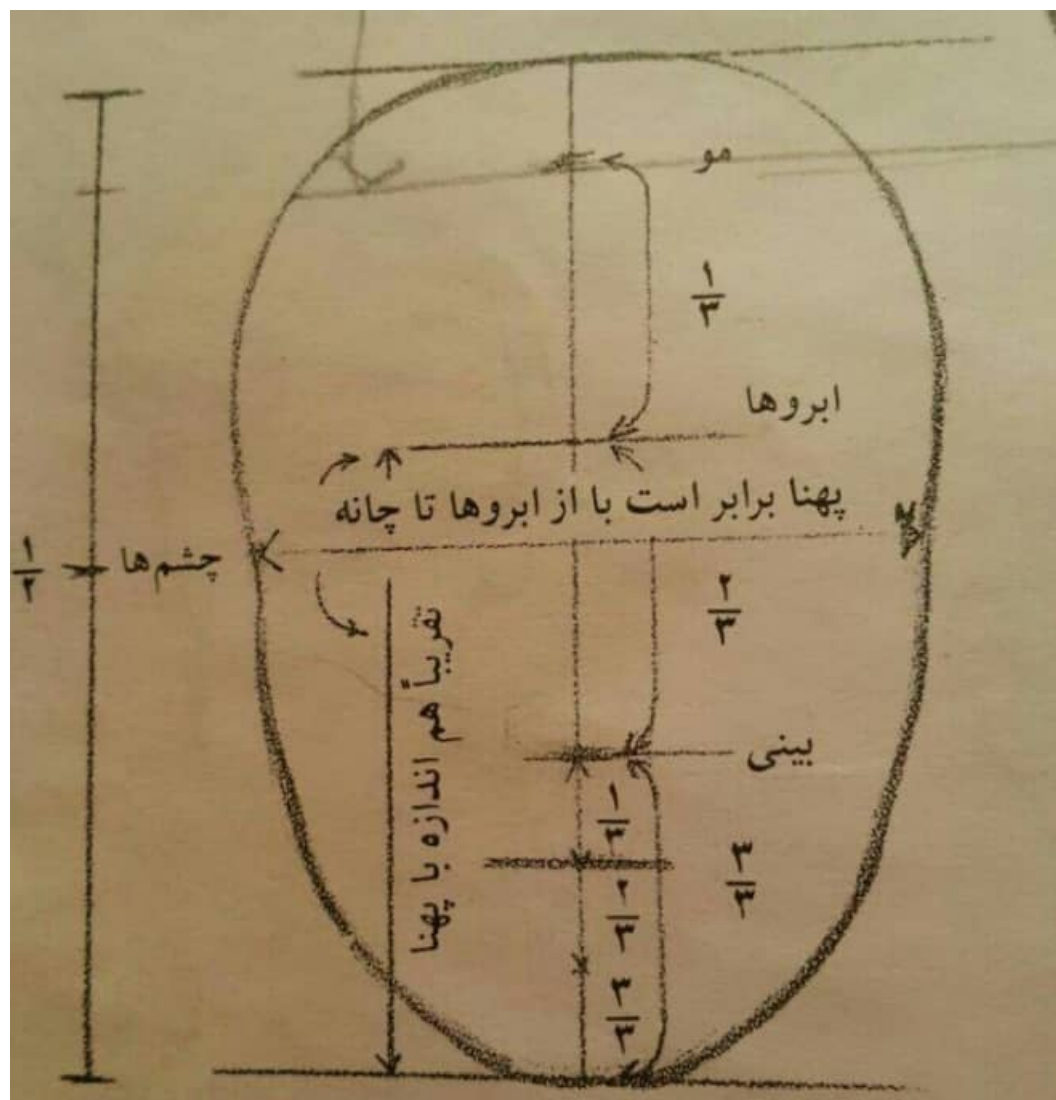 مو
۱/۳
ابروها
پهنا برابر است با از ابروها تا چانه
چشم‌ها
۱/۲
۲/۳
تقریباً هم اندازه با پهنا
بینی
۱/۳
۳/۳
۲/۳
۳/۳